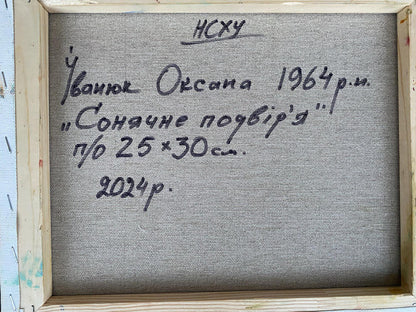 НСХУ
Іванюк Оксана 1964 р.н.
„Сонячне подвір'я"
п/о 25×30 см.
2024 р.